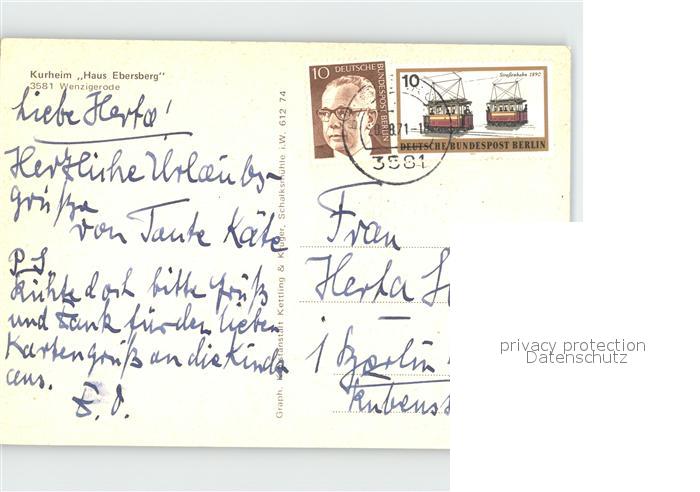 Kurheim „Haus Ebersberg"
3581 Wenzigerode
Liebe Herta!
Herzliche Urlaubs-
grüße
von Tante Käte
P.S
Richte doch bitte Gruß
und Dank für den lieben
Kartengruß an die Kinder
aus.
D. O.
Graph. Kunstanstalt Kettling & Krüger, Schalksmühle i.W. 612 74
10 DEUTSCHE BUNDESPOST BERLIN
10 Straßenbahn 1890
DEUTSCHE BUNDESPOST BERLIN
.71-1
3581
Frau
Herta
1 Berlin
privacy protection
Datenschutz